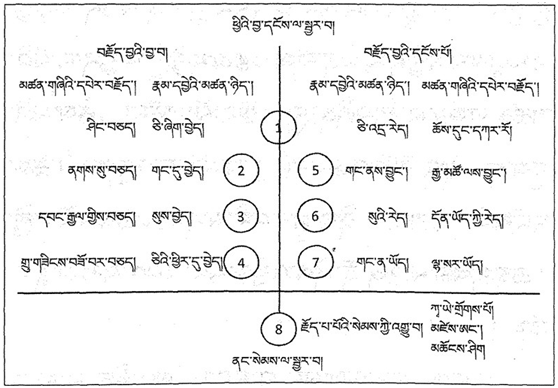 ཕྱིའི་བྱ་དངོས་ལ་སྦྱར་བ།
བརྗོད་བྱའི་བྱ་བ། བརྗོད་བྱའི་དངོས་པོ།
མཚན་གཞིའི་དཔེར་བརྗོད། རྣམ་དབྱེའི་མཚན་ཉིད། རྣམ་དབྱེའི་མཚན་ཉིད། མཚན་གཞིའི་དཔེར་བརྗོད།
ཤིང་བཅད། ཅི་ཞིག་བྱེད། 1 ཅི་འདྲ་རེད། ཆོས་དུང་དཀར་རོ།
ནགས་སུ་བཅད། གང་དུ་བྱེད། 2 5 གང་ནས་བྱུང་། རྒྱ་མཚོ་ལས་བྱུང་།
དབང་རྒྱལ་གྱིས་བཅད། སུས་བྱེད། 3 6 སུའི་རེད། དོན་ཡོད་ཀྱི་རེད།
གྲུ་གཟིངས་བཟོ་བར་བཅད། ཅིའི་ཕྱིར་དུ་བྱེད། 4 7 གང་ན་ཡོད། ལྷ་སར་ཡོད།
ཀྭ་ཡེ་གྲོགས་པོ།
8 རྗོད་པ་པོའི་སེམས་ཀྱི་འགྱུ་བ། མཛེས་ཨང་།
མཆོངས་ཤིག
ནང་སེམས་ལ་སྦྱར་བ།